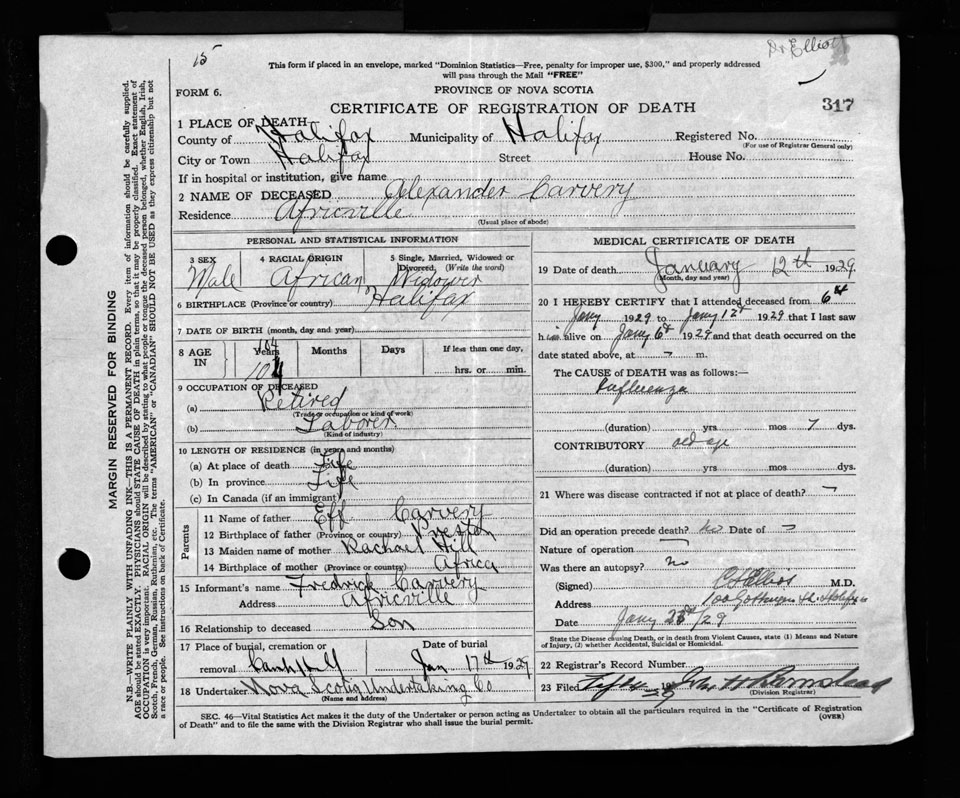 15
Dr Elliott
This form if placed in an envelope, marked "Dominion Statistics—Free, penalty for improper use, $300," and properly addressed
will pass through the Mail "FREE"
FORM 6.
PROVINCE OF NOVA SCOTIA
CERTIFICATE OF REGISTRATION OF DEATH
317
1 PLACE OF DEATH
County of Halifax Municipality of Halifax Registered No.
(For use of Registrar General only)
City or Town Halifax Street House No.
If in hospital or institution, give name
2 NAME OF DECEASED Alexander Carvery
Residence Africville
(Usual place of abode)
PERSONAL AND STATISTICAL INFORMATION
3 SEX 4 RACIAL ORIGIN 5 Single, Married, Widowed or
Divorced, (Write the word)
Male African Widower
6 BIRTHPLACE (Province or country) Halifax
7 DATE OF BIRTH (month, day and year)
8 AGE IN Years Months Days If less than one day,
104
104 hrs. or min.
9 OCCUPATION OF DECEASED
(a) Retired
(Trade or occupation or kind of work)
(b) Laborer
(Kind of industry)
10 LENGTH OF RESIDENCE (in years and months)
(a) At place of death Life
(b) In province Life
(c) In Canada (if an immigrant)
Parents
11 Name of father Eff Carvery
12 Birthplace of father (Province or country) Preston
13 Maiden name of mother Rachael Hill
14 Birthplace of mother (Province or country) Africa
15 Informant's name Fredrick Carvery
Address Africville
16 Relationship to deceased Son
17 Place of burial, cremation or Date of burial
removal Jan 17th 1929
18 Undertaker Nova Scotia Undertaking Co
(Name and address)
MEDICAL CERTIFICATE OF DEATH
19 Date of death January 12th 1929.
(Month, day and year)
20 I HEREBY CERTIFY that I attended deceased from 6th
Jany 1929 to Jany 12th 1929 that I last saw
him alive on Jany 6th 1929 and that death occurred on the
date stated above, at m.
The CAUSE of DEATH was as follows:—
Influenza
(duration) yrs mos 7 dys.
CONTRIBUTORY old age
(duration) yrs mos dys.
21 Where was disease contracted if not at place of death?
Did an operation precede death? No Date of
Nature of operation
Was there an autopsy? No
(Signed) M.D.
Address 100 Gottingen St. Halifax
Date Jany /29
State the Disease causing Death, or in death from Violent Causes, state (1) Means and Nature
of Injury, (2) whether Accidental, Suicidal or Homicidal.
22 Registrar's Record Number
23 Filed John H Barnstead
(Division Registrar)
SEC. 46—Vital Statistics Act makes it the duty of the Undertaker or person acting as Undertaker to obtain all the particulars required in the "Certificate of Registration
of Death" and to file the same with the Division Registrar who shall issue the burial permit.
(OVER)
MARGIN RESERVED FOR BINDING
N.B.—WRITE PLAINLY WITH UNFADING INK—THIS IS A PERMANENT RECORD. Every item of information should be carefully supplied.
AGE should be stated EXACTLY. PHYSICIANS should STATE CAUSE OF DEATH in plain terms, so that it may be properly classified. Exact statement of
OCCUPATION is very important. RACIAL ORIGIN will be described by stating to what people or tongue the deceased person belonged, whether English, Irish,
Scotch, French, German, Russian, Ruthenian, etc. The terms "AMERICAN" or "CANADIAN" SHOULD NOT BE USED as they express citizenship but not
a race or people. See instructions on back of Certificate.